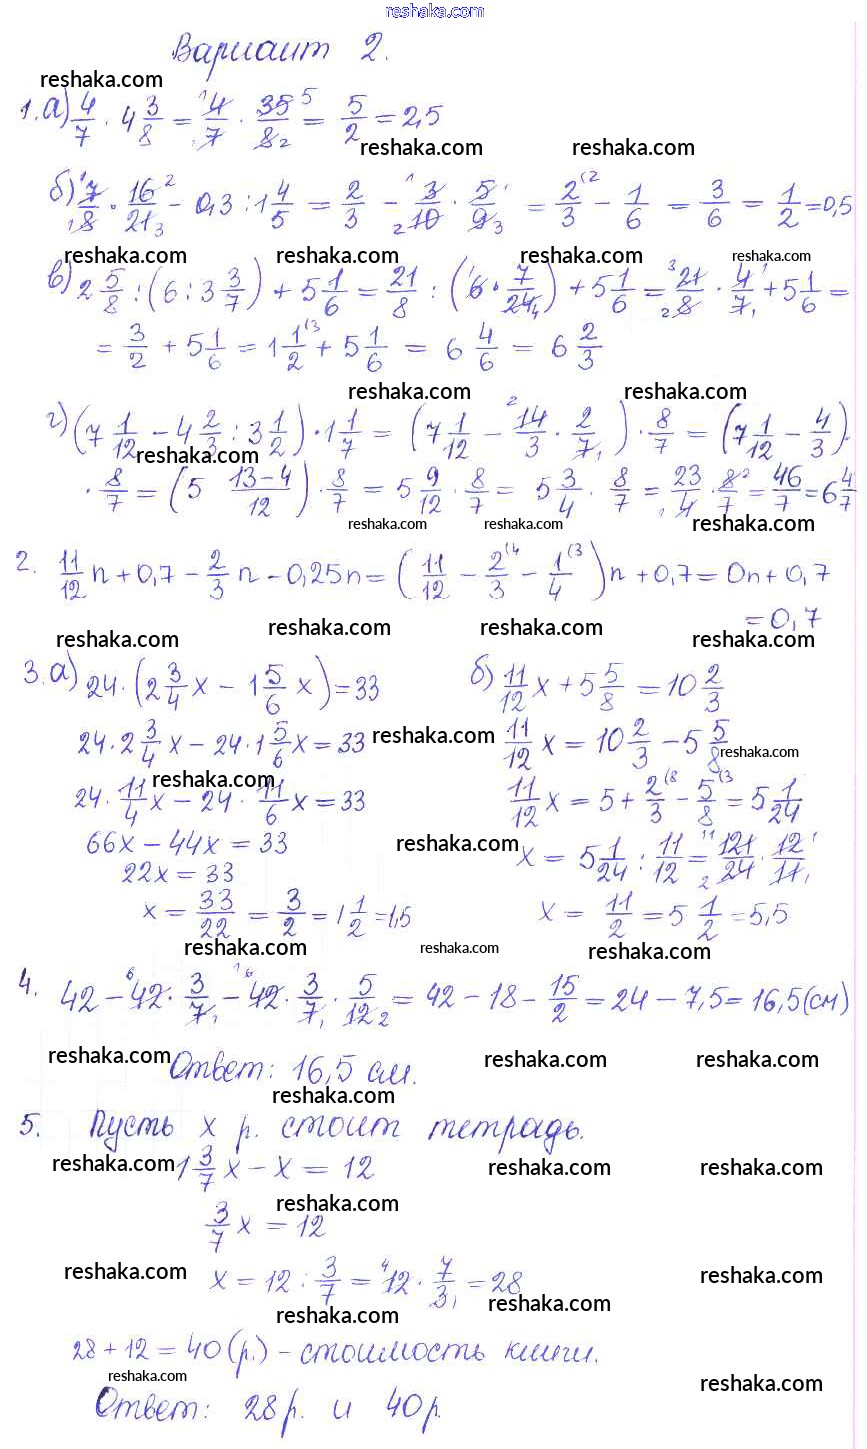 reshaka.com
Вариант 2.
reshaka.com
1. а) 4/7 · 4 3/8 = 4/7 · 35/8 = 5/2 = 2,5
reshaka.com reshaka.com
б) 7/8 · 16/21 - 0,3 : 1 4/5 = 2/3 - 3/10 · 5/9 = 2/3 - 1/6 = 3/6 = 1/2 = 0,5
reshaka.com reshaka.com reshaka.com reshaka.com
в) 2 5/8 : (6 : 3 3/7) + 5 1/6 = 21/8 : (6 · 7/24) + 5 1/6 = 21/8 · 4/7 + 5 1/6 =
= 3/2 + 5 1/6 = 1 1/2 + 5 1/6 = 6 4/6 = 6 2/3
reshaka.com reshaka.com
г) (7 1/12 - 4 2/3 : 3 1/2) · 1 1/7 = (7 1/12 - 14/3 · 2/7) · 8/7 = (7 1/12 - 4/3) ·
reshaka.com
· 8/7 = (5 13-4/12) · 8/7 = 5 9/12 · 8/7 = 5 3/4 · 8/7 = 23/4 · 8/7 = 46/7 = 6 4/7
reshaka.com reshaka.com reshaka.com
2. 11/12 n + 0,7 - 2/3 n - 0,25n = (11/12 - 2/3 - 1/4) n + 0,7 = 0n + 0,7
= 0,7
reshaka.com reshaka.com reshaka.com reshaka.com
3. а) 24 · (2 3/4 x - 1 5/6 x) = 33
24 · 2 3/4 x - 24 · 1 5/6 x = 33
reshaka.com
24 · 11/4 x - 24 · 11/6 x = 33
reshaka.com
66x - 44x = 33
22x = 33
x = 33/22 = 3/2 = 1 1/2 = 1,5
б) 11/12 x + 5 5/8 = 10 2/3
11/12 x = 10 2/3 - 5 5/8
reshaka.com
11/12 x = 5 + 2/3 - 5/8 = 5 1/24
reshaka.com
x = 5 1/24 : 11/12 = 121/24 · 12/11
x = 11/2 = 5 1/2 = 5,5
reshaka.com reshaka.com reshaka.com
4. 42 - 42 · 3/7 - 42 · 3/7 · 5/12 = 42 - 18 - 15/2 = 24 - 7,5 = 16,5 (см)
reshaka.com reshaka.com reshaka.com
Ответ: 16,5 см.
reshaka.com
5. Пусть x р. стоит тетрадь.
reshaka.com reshaka.com reshaka.com
1 3/7 x - x = 12
reshaka.com
3/7 x = 12
reshaka.com reshaka.com
x = 12 : 3/7 = 12 · 7/3 = 28
reshaka.com reshaka.com
28 + 12 = 40 (р.) - стоимость книги.
reshaka.com reshaka.com
Ответ: 28 р. и 40 р.